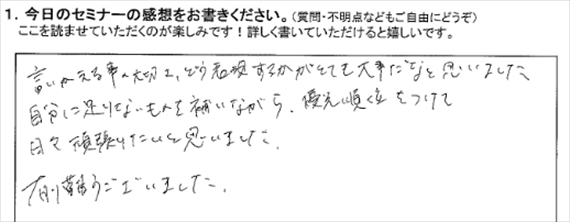 1. 今日のセミナーの感想をお書きください。(質問・不明点などもご自由にどうぞ)
ここを読ませていただくのが楽しみです！詳しく書いていただけると嬉しいです。
言いかえる事の大切さ、どう表現するかがとても大事だなと思いました
自分に足りないものを補いながら、優先順位をつけて
日々頑張りたいと思いました。
有難うございました。